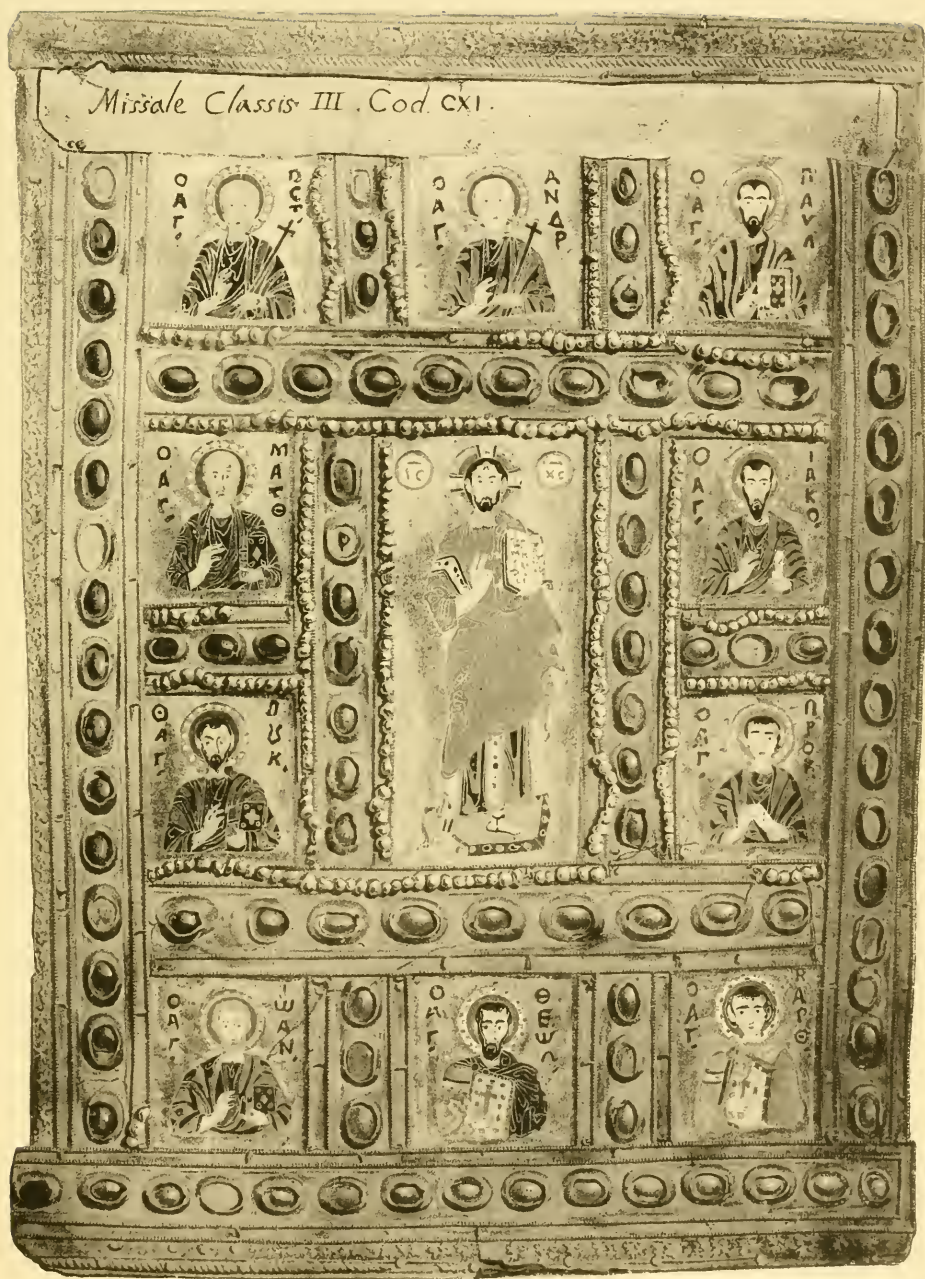 Missale Classis III . Cod. CXI.
Ο ΑΓ.
ΠЄΤ.
Ο ΑΓ.
ΑΝΔΡ
Ο ΑΓ.
ΠΑΥΛ
Ο ΑΓ.
ΜΑΤΘ
ΙC
ΧC
Ο ΑΓ.
ΙΑΚΟ
Θ ΑΓ.
ΛȢΚ.
Ο ΑΓ.
ΠΡΟΚ.
Ο ΑΓ.
ΙΩΑΝ.
Ο ΑΓ.
ΘΕΩΛ
Ο ΑΓ.
ΒΑΡΘ.